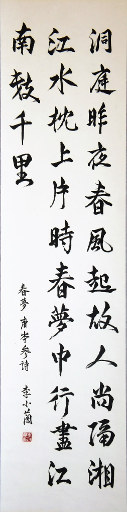 洞庭昨夜春風起故人尚隔湘
江水枕上片時春夢中行盡江
南數千里
春夢 唐岑參詩 李小蘭